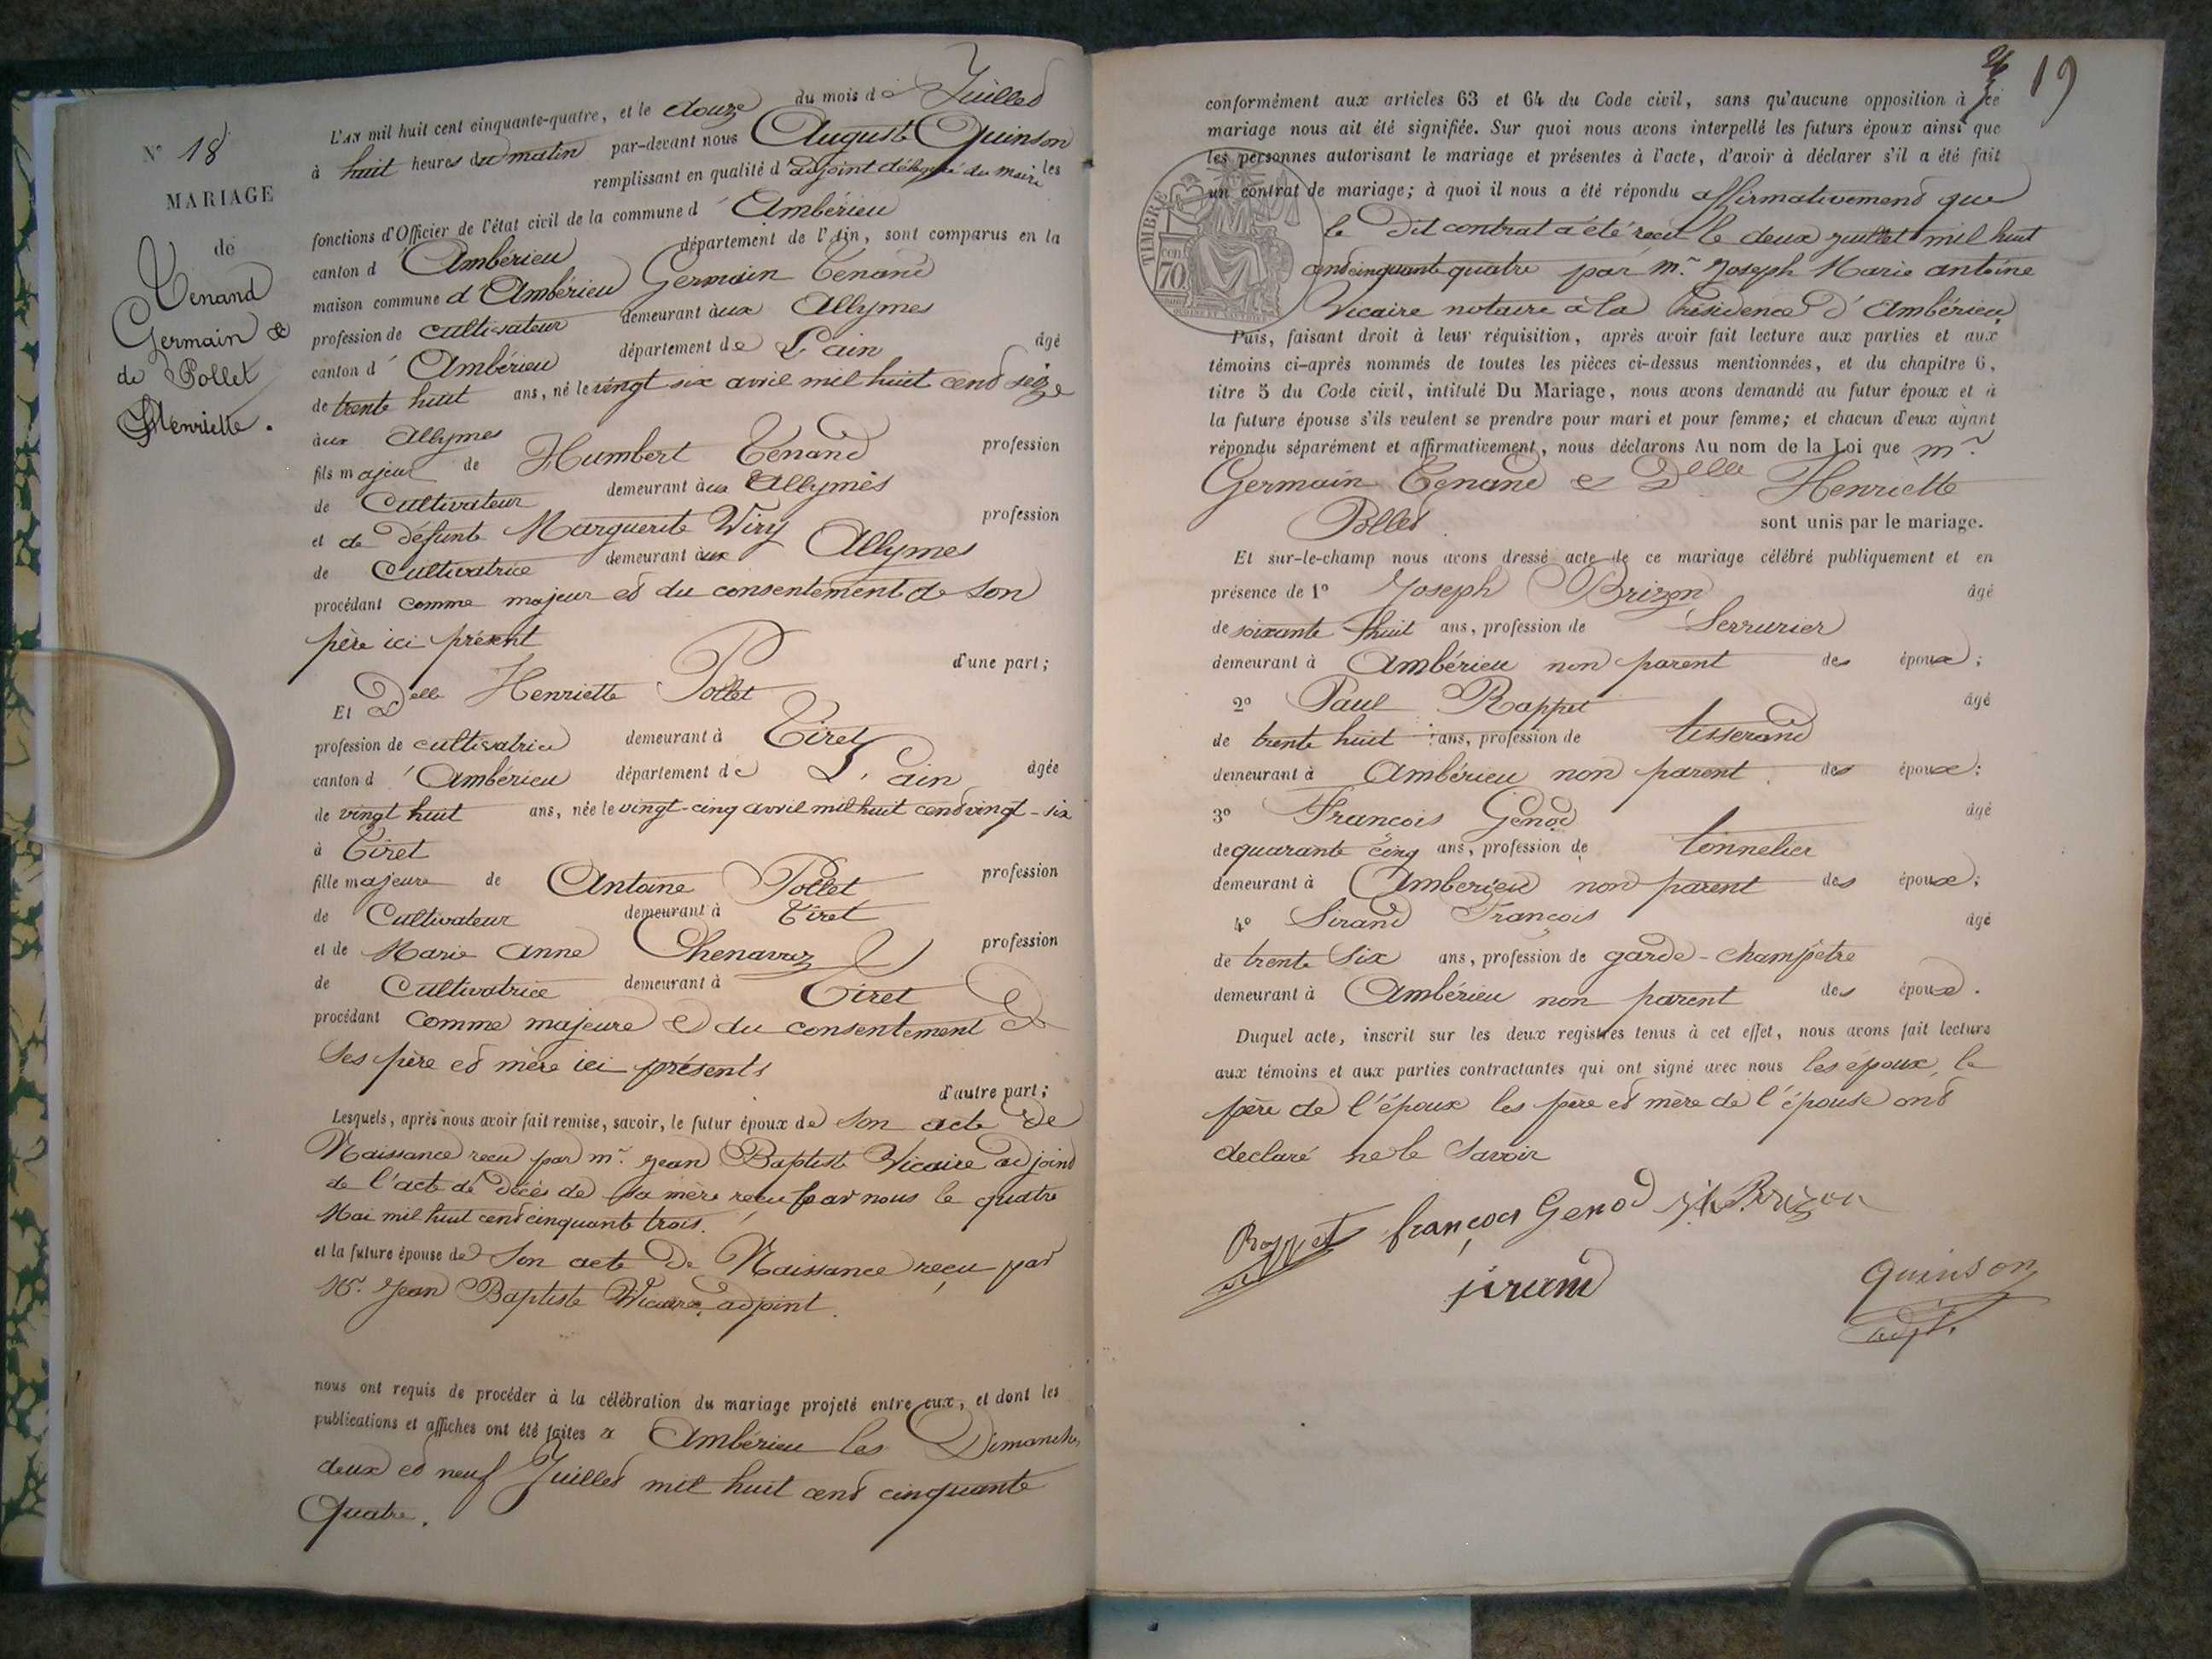 N° 18
MARIAGE
de
Tenand
Germain &
de Pollet
Henriette.
L'AN mil huit cent cinquante-quatre, et le douze du mois de Juillet
à huit heures du matin par-devant nous Auguste Quinson
remplissant en qualité d'adjoint délégué du maire les
fonctions d'Officier de l'état civil de la commune d'Ambérieu
canton d'Ambérieu département de l'Ain, sont comparus en la
maison commune d'Ambérieu Germain Tenand
profession de cultivateur demeurant aux Allymes
canton d'Ambérieu département de L'ain âgé
de trente huit ans, né le vingt six avril mil huit cent seize
aux Allymes
fils majeur de Humbert Tenand profession
de Cultivateur demeurant aux Allymes
et de défunte Marguerite Viry profession
de Cultivatrice demeurant aux Allymes
procédant comme majeur et du consentement de son
père ici présent
d'une part;
Et Delle Henriette Pollet
profession de cultivatrice demeurant à Tiret
canton d'Ambérieu département de L'ain âgée
de vingt huit ans, née le vingt-cinq avril mil huit cent vingt-six
à Tiret
fille majeure de Antoine Pollet profession
de Cultivateur demeurant à Tiret
et de Marie Anne Chenavaz profession
de Cultivatrice demeurant à Tiret
procédant comme majeure et du consentement de
ses père et mère ici présents
d'autre part;
Lesquels, après nous avoir fait remise, savoir, le futur époux de son acte de
Naissance recu par mr. Jean Baptiste Vicaire adjoint
de l'acte de décès de sa mère reçu par nous le quatre
Mai mil huit cent cinquante trois.
et la future épouse de son acte de Naissance reçu par
Mr. Jean Baptiste Vicaire, adjoint.
nous ont requis de procéder à la célébration du mariage projeté entre eux, et dont les
publications et affiches ont été faites à Ambérieu les Dimanches
deux et neuf Juillet mil huit cent cinquante
Quatre.
19
conformément aux articles 63 et 64 du Code civil, sans qu'aucune opposition à ce
mariage nous ait été signifiée. Sur quoi nous avons interpellé les futurs époux ainsi que
les personnes autorisant le mariage et présentes à l'acte, d'avoir à déclarer s'il a été fait
un contrat de mariage; à quoi il nous a été répondu affirmativement que
le dit contrat a été recu le deux juillet mil huit
cent cinquante quatre par mr. Joseph Marie antoine
Vicaire notaire à la Résidence d'Ambérieu
TIMBRE
70
Puis, faisant droit à leur réquisition, après avoir fait lecture aux parties et aux
témoins ci-après nommés de toutes les pièces ci-dessus mentionnées, et du chapitre 6,
titre 5 du Code civil, intitulé Du Mariage, nous avons demandé au futur époux et à
la future épouse s'ils veulent se prendre pour mari et pour femme; et chacun d'eux ayant
répondu séparément et affirmativement, nous déclarons Au nom de la Loi que mr.
Germain Tenand et Delle Henriette
Pollet sont unis par le mariage.
Et sur-le-champ nous avons dressé acte de ce mariage célébré publiquement et en
présence de 1° Joseph Brizon âgé
de soixante huit ans, profession de Serrurier
demeurant à Ambérieu non parent des époux;
2° Paul Rappet âgé
de trente huit ans, profession de tisserand
demeurant à Ambérieu non parent des époux;
3° François Genod âgé
de quarante cinq ans, profession de tonnelier
demeurant à Amberieu non parent des époux;
4° Sirand François âgé
de trente six ans, profession de garde-champêtre
demeurant à Ambérieu non parent des époux.
Duquel acte, inscrit sur les deux registres tenus à cet effet, nous avons fait lecture
aux témoins et aux parties contractantes qui ont signé avec nous les époux, le
père de l'époux les père et mère de l'épouse ont
declaré ne le savoir
Rappet françois Genod Brizon
sirand
quinson
adjt.